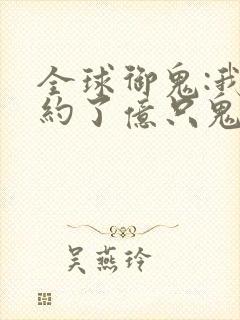 全球御鬼:我
約了億只鬼
吴燕玲